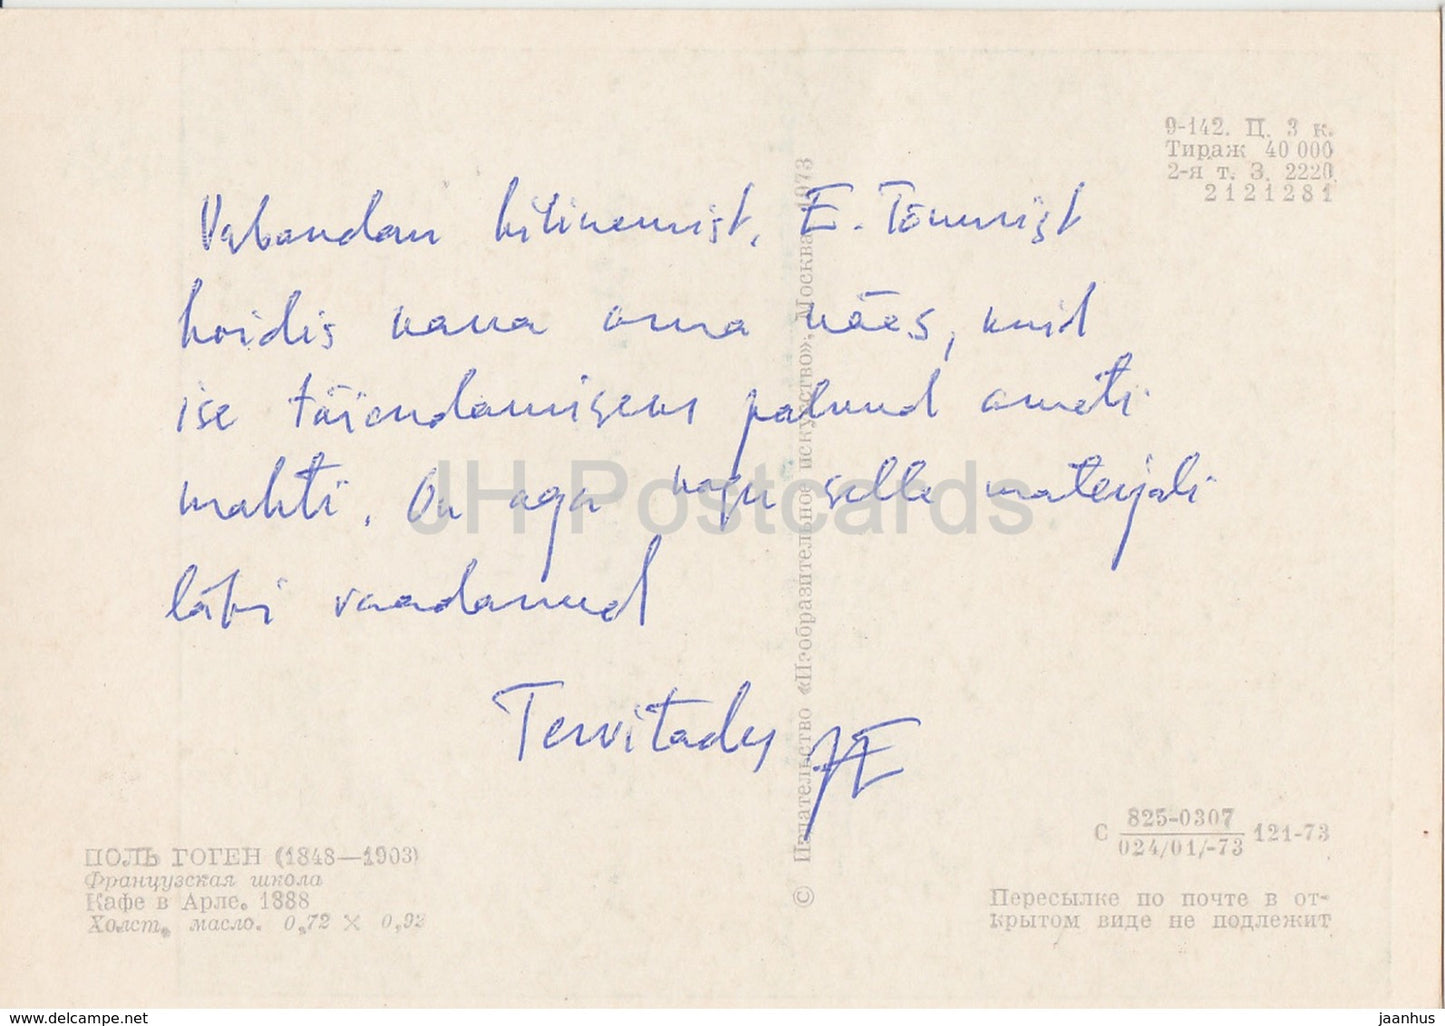 9-142. Ц. 3 к.
Тираж 40 000
2-я т. З. 2220
2121281
Vabandan hilinemist. E. Tõnurist
hoidis kaua oma käes, kuid
ise täiendamisens palunud ameti
mahti. On aga kogu selle materjali
läbi vaadanud
Tervitades
© Издательство «Изобразительное искусство», Москва 1973
JH Postcards
ПОЛЬ ГОГЕН (1848—1903)
Французская школа
Кафе в Арле. 1888
Холст, масло. 0,72 × 0,92
С 825-0307 121-73
024/01/-73
Пересылке по почте в от-
крытом виде не подлежит
www.delcampe.net
jaanhus